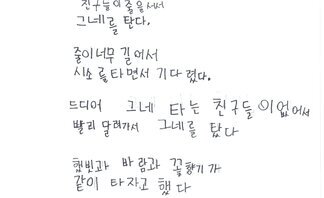 친구들이 줄을 서서
그네를 탄다.
줄이 너무 길어서
시소를 타면서 기다렸다.
드디어 그네 타는 친구들이 없어서
빨리 달려가서 그네를 탔다
햇빛과 바람과 꽃향기가
같이 타자고 했다